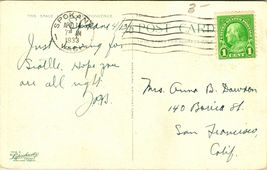 3-
THIS SPACE
SPOKANE
APR
1933
POST CARD
1 CENT 1
4/12/33
Just leaving for
Seattle. Hope you
are all right
Mrs. Anna B. Dawson
140 Borica St
San Francisco,
Calif.